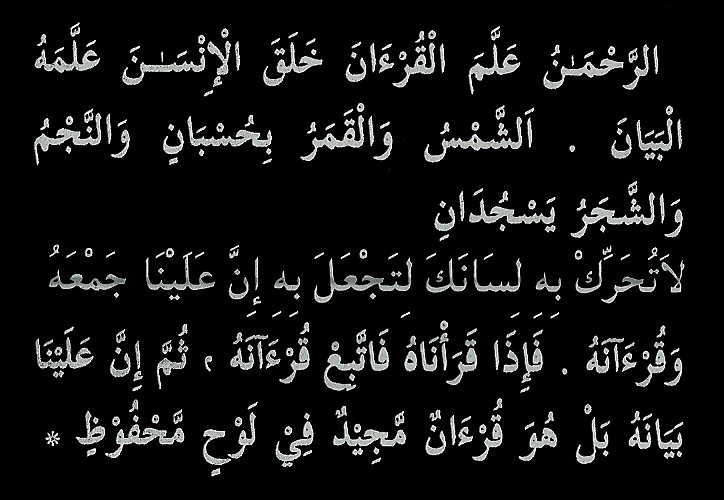 الرَّحْمَـٰنُ عَلَّمَ الْقُرْءَانَ خَلَقَ الْإِنْسَـٰـنَ عَلَّمَهُ
الْبَيَانَ . اَلشَّمْسُ وَالْقَمَرُ بِحُسْبَانٍ وَالنَّجْمُ
وَالشَّجَرُ يَسْجُدَانِ
لاَتُحَرِّكْ بِهِ لِسَانَكَ لِتَجْعَلَ بِهِ إِنَّ عَلَيْنَا جَمْعَهُ
وَقُرْءَآنَهُ . فَإِذَا قَرَأْنَاهُ فَاتَّبِعْ قُرْءَآنَهُ ، ثُمَّ إِنَّ عَلَيْنَا
بَيَانَهُ بَلْ هُوَ قُرْءَانٌ مَّجِيْدٌ فِيْ لَوْحٍ مَّحْفُوْظٍ *